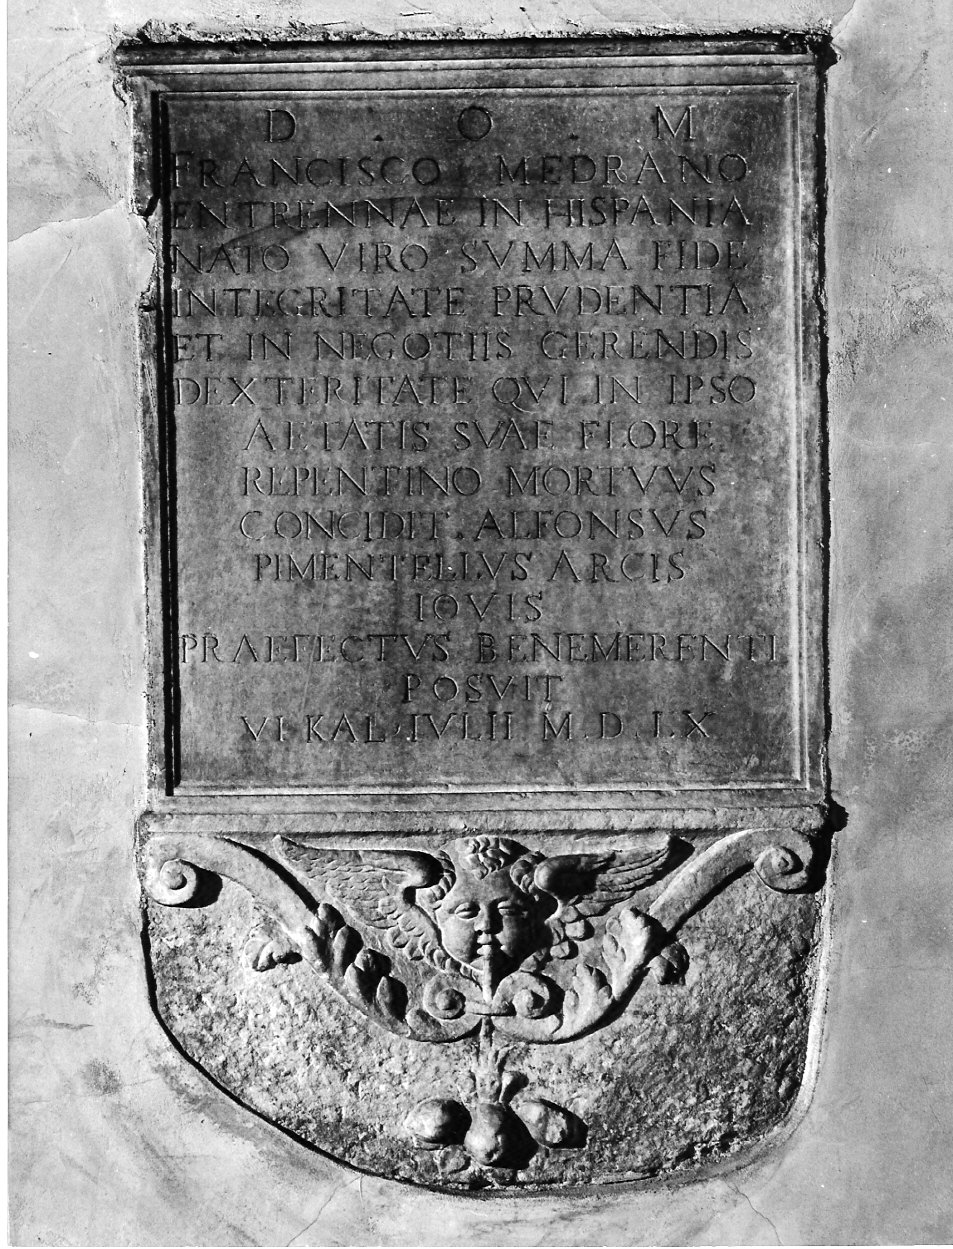 D · O · M
FRANCISCO MEDRANO
ENTRENNAE IN HISPANIA
NATO VIRO SVMMA FIDE
INTEGRITATE PRVDENTIA
ET IN NEGOTIIS GERENDIS
DEXTERITATE QVI IN IPSO
AETATIS SVAE FLORE
REPENTINO MORTVVS
CONCIDIT. ALFONSVS
PIMENTELLVS ARCIS
IOVIS
PRAEFECTVS BENEMERENTI
POSVIT
VI·KAL·IVLII M·D·LX